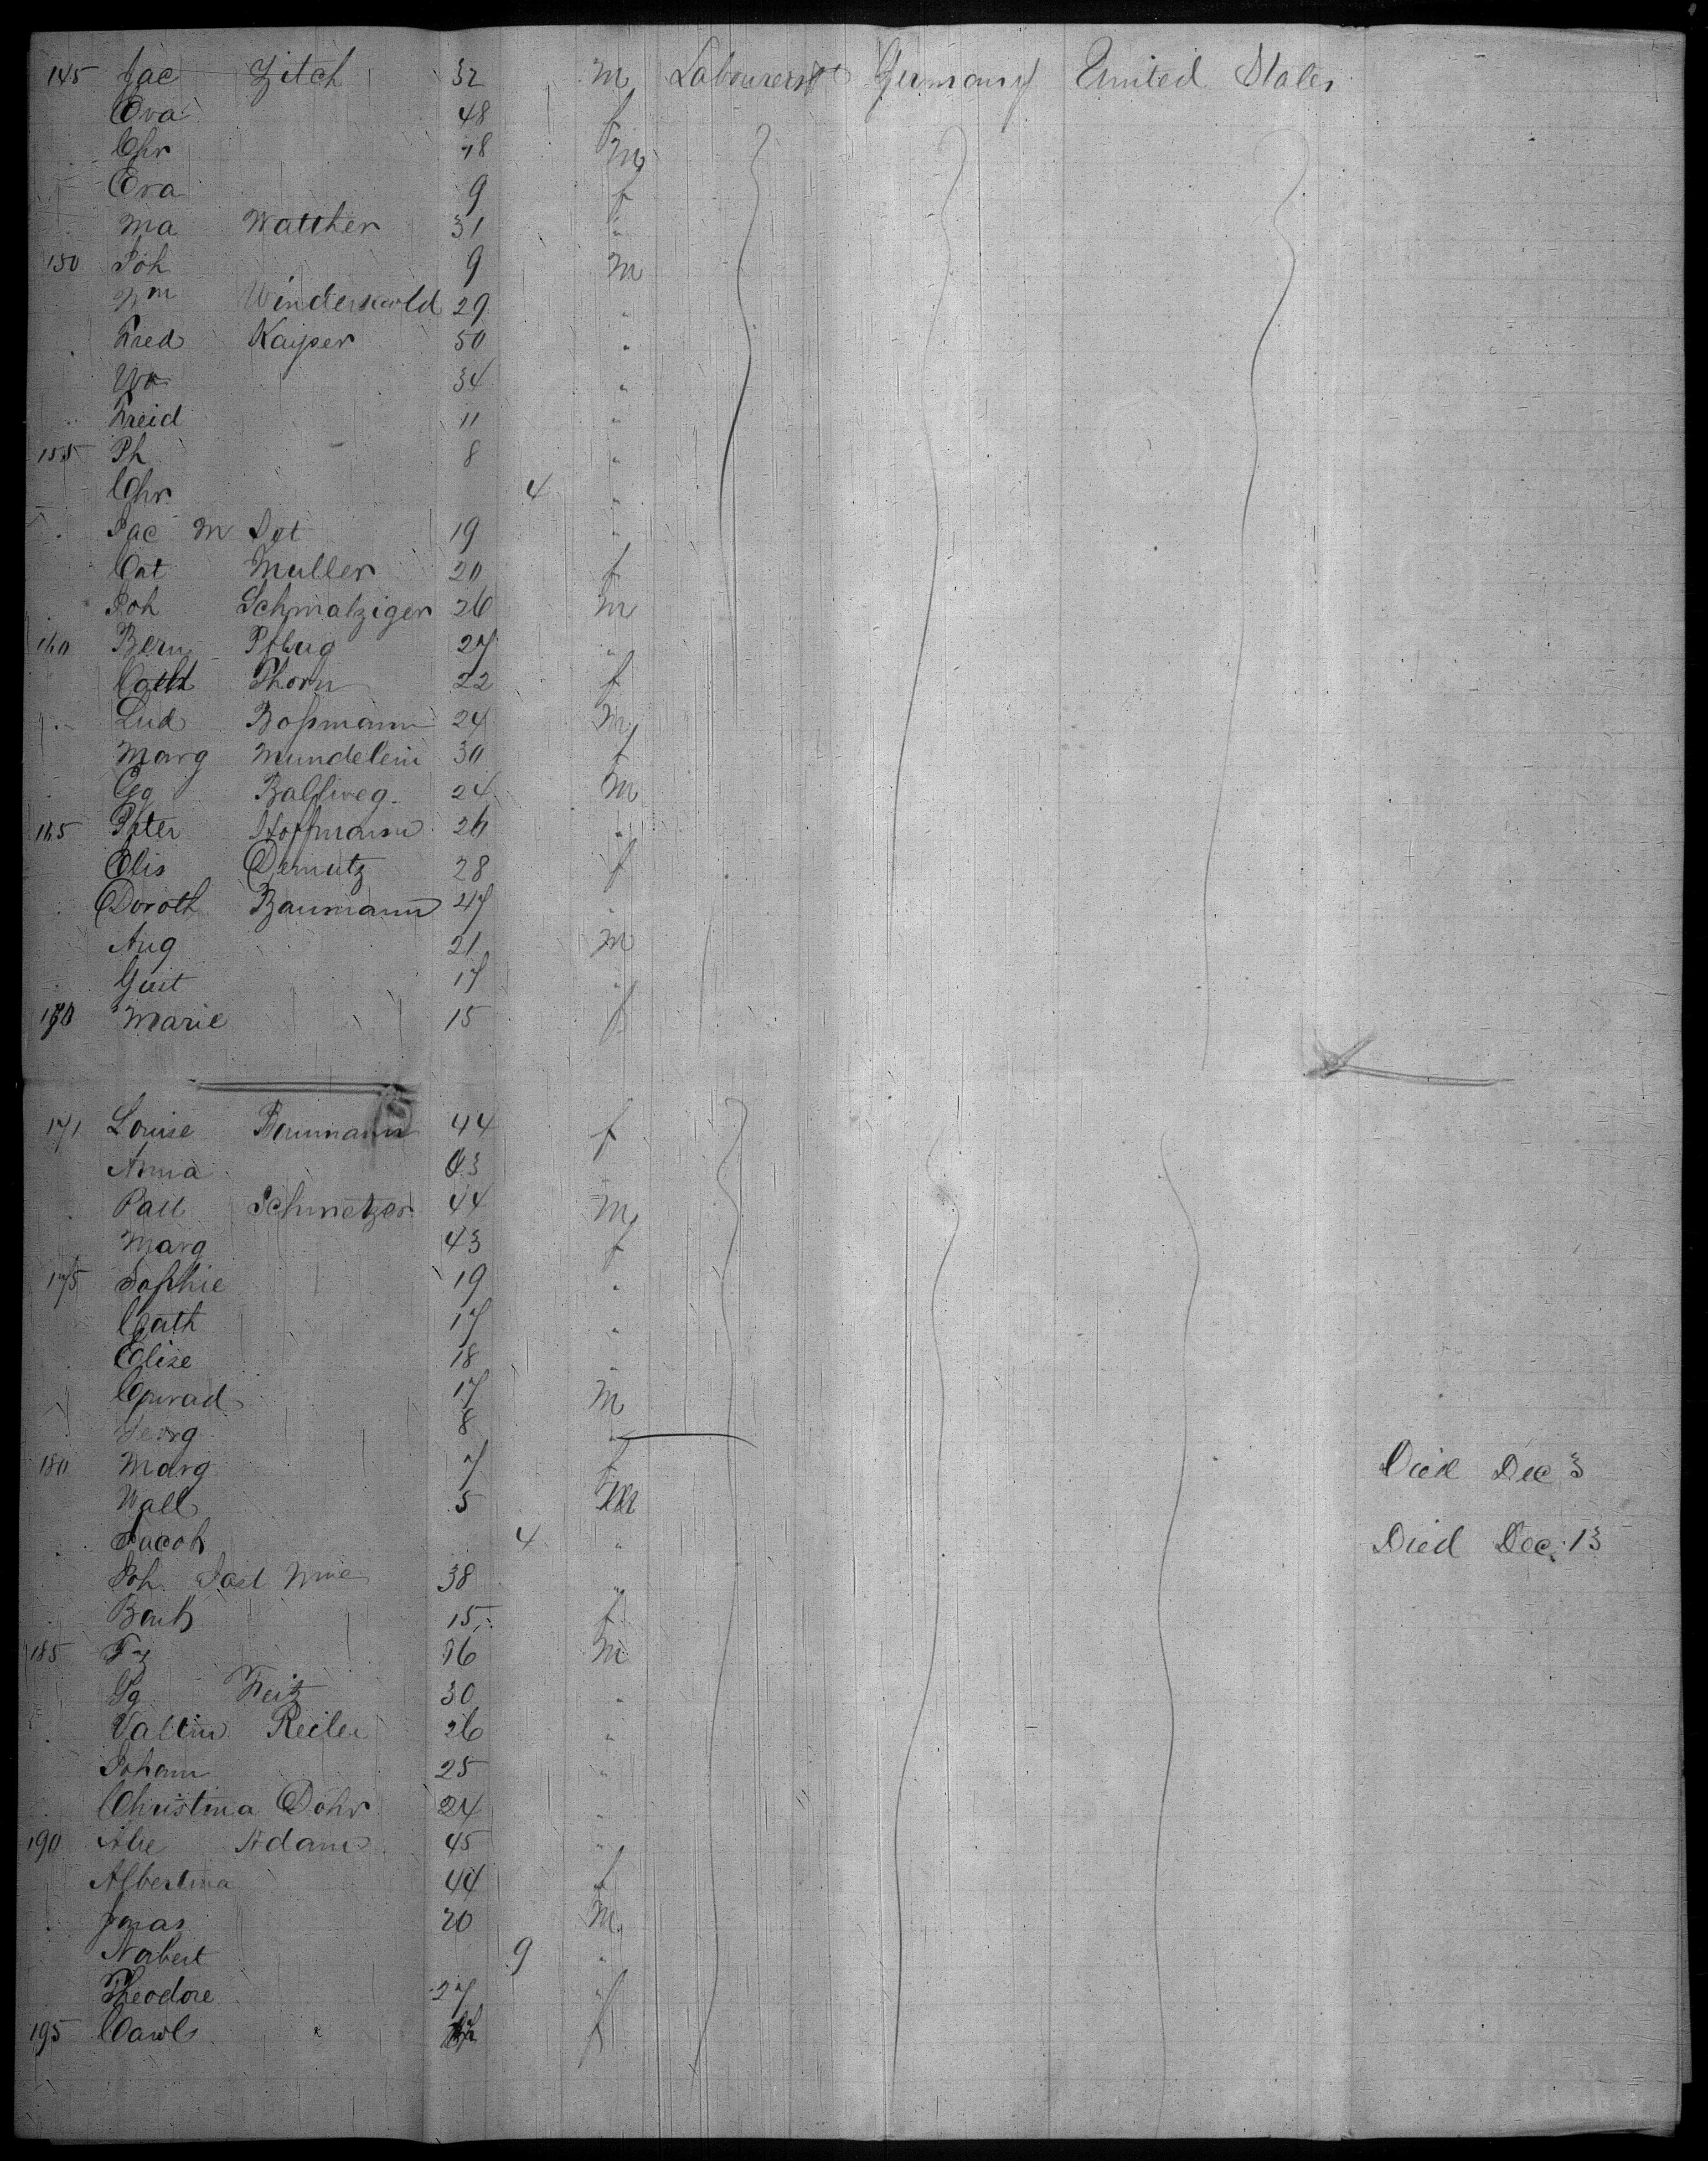 145 Jac Zitch 32 m Labourers Germany United States
Eva 48 f
Chr 18 m
Eva 9 f
Ma Watcher 31 "
150 Joh 9 m
Wm Winderwold 29 "
Fred Kayser 50 "
34 "
Freid 11 "
155 Ph 8 "
Chr 4 "
Jac M 19 "
Cat Muller 20 f
Joh Schmalziger 26 m
160 Bern Pflug 27 "
Cath Thorn 22 f
Lud Boßmann 24 m
Marg Mundelein 30 f
Gg 24 m
165 Peter Hoffmann 26 "
Elis 28 f
Doroth Baumann 47 "
Aug 21 m
Gust 17 "
170 Marie 15 f
171 Louise Baumann 44 f
Anna
Schmetzer 44 m
Marg 43 f
175 Sophie 19 "
Cath 17 "
Elise 18 "
Conrad 17 m
Georg 8 "
180 Marg 7 f Died Dec 3
Wall 5 m
Jacob 4 " Died Dec. 13
Joh. 38 "
Barb 15 f
185 Fz m
Gg 30 "
Valtin Reiler 26 "
Johann 25 "
Christina Döhr 24 "
190 Adam 45 "
Albertina 44 f
Jonas 20 m
Norbert 9 "
Theodore 27 "
195 f